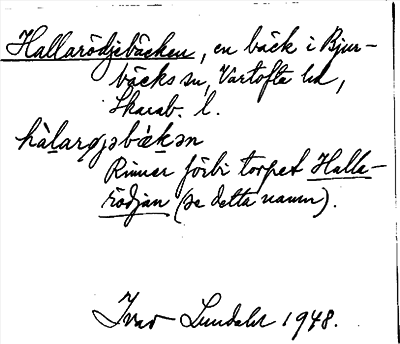 Hallarödjebäcken, en bäck i Bjur-
bäcks sn, Vartofta hd,
Skarab. l.
hàlarøjəbǽkən
Rinner förbi torpet Halla-
rödjan (se detta namn).
Ivar Lundahl 1948.